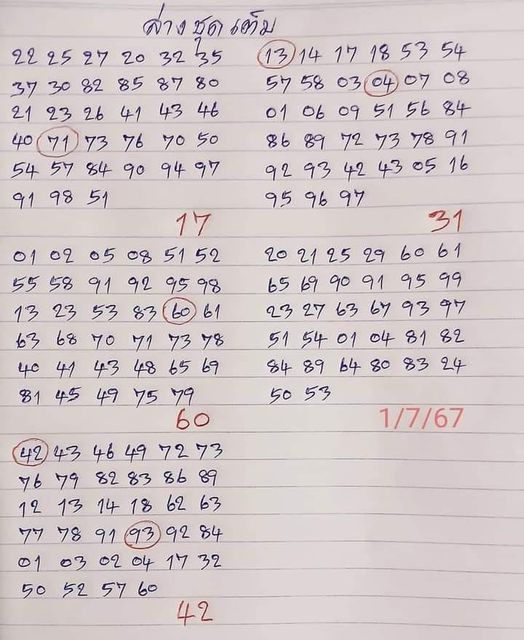 ล่าง ชุด เต็ม
22 25 27 20 32 35
37 30 82 85 87 80
21 23 26 41 43 46
40 71 73 76 70 50
54 57 84 90 94 97
91 98 51
17
13 14 17 18 53 54
57 58 03 04 07 08
01 06 09 51 56 84
86 89 72 73 78 91
92 93 42 43 05 16
95 96 97
31
01 02 05 08 51 52
55 58 91 92 95 98
13 23 53 83 60 61
63 68 70 71 73 78
40 41 43 48 65 69
81 45 49 75 79
60
20 21 25 29 60 61
65 69 90 91 95 99
23 27 63 67 93 97
51 54 01 04 81 82
84 89 64 80 83 24
50 53
1/7/67
42 43 46 49 72 73
76 79 82 83 86 89
12 13 14 18 62 63
77 78 91 93 92 84
01 03 02 04 17 32
50 52 57 60
42